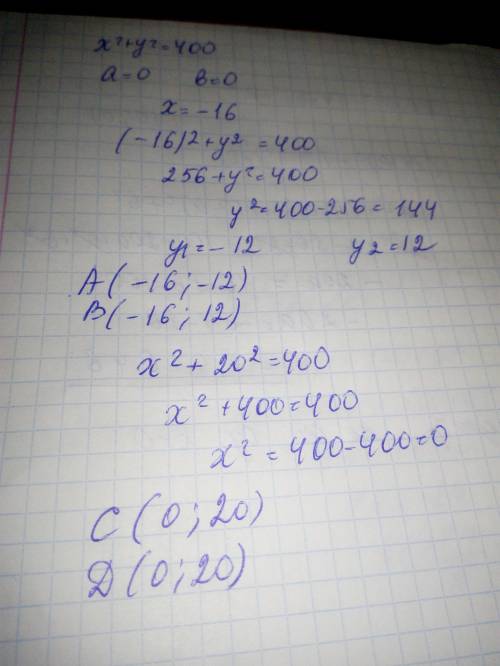 x²+y²=400
a=0 в=0
x=-16
(-16)2+y²=400
256+y²=400
y²=400-256=144
y1=-12 y2=12
A(-16;-12)
B(-16;12)
x²+20²=400
x²+400=400
x²=400-400=0
C(0;20)
D(0;20)